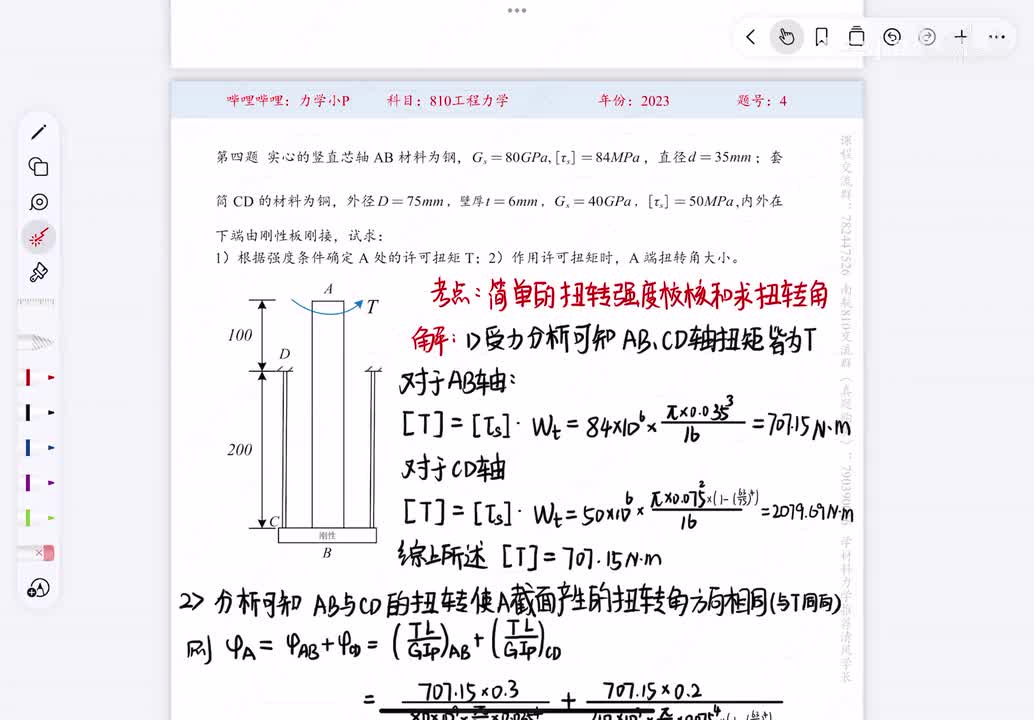 哔哩哔哩：力学小P 科目：810工程力学 年份：2023 题号：4
第四题 实心的竖直芯轴 AB 材料为钢，Gₛ=80GPa,[τₛ]=84MPa，直径d=35mm；套
筒 CD 的材料为铜，外径D=75mm，壁厚t=6mm，Gₛ=40GPa，[τₛ]=50MPa,内外在
下端由刚性板刚接，试求：
1）根据强度条件确定 A 处的许可扭矩 T；2）作用许可扭矩时，A 端扭转角大小。
考点：简单的扭转强度校核和求扭转角
A
T
100
D
200
C
刚性
B
解：1) 受力分析可知 AB、CD轴扭矩皆为T
对于AB轴：
[T]=[τs]·Wt=84×10⁶×π×0.035³/16=707.15N·m
对于CD轴
[T]=[τs]·Wt=50×10⁶×π×0.075²×(1-(63/75)⁴)/16=2079.69N·m
综上所述 [T]=707.15N·m
2> 分析可知 AB与CD的扭转使A截面产生的扭转角方向相同(与T同向)
则 φA=φAB+φCD=(TL/GIp)AB+(TL/GIp)CD
=707.15×0.3/ + 707.15×0.2/
课程交流群：782447526 南航810交流群（真题
学材料力学推荐清风学长